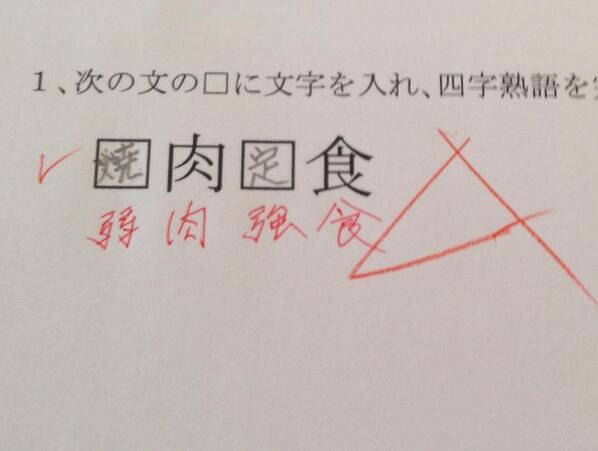 1、次の文の□に文字を入れ、四字熟語を
焼肉定食
弱肉強食